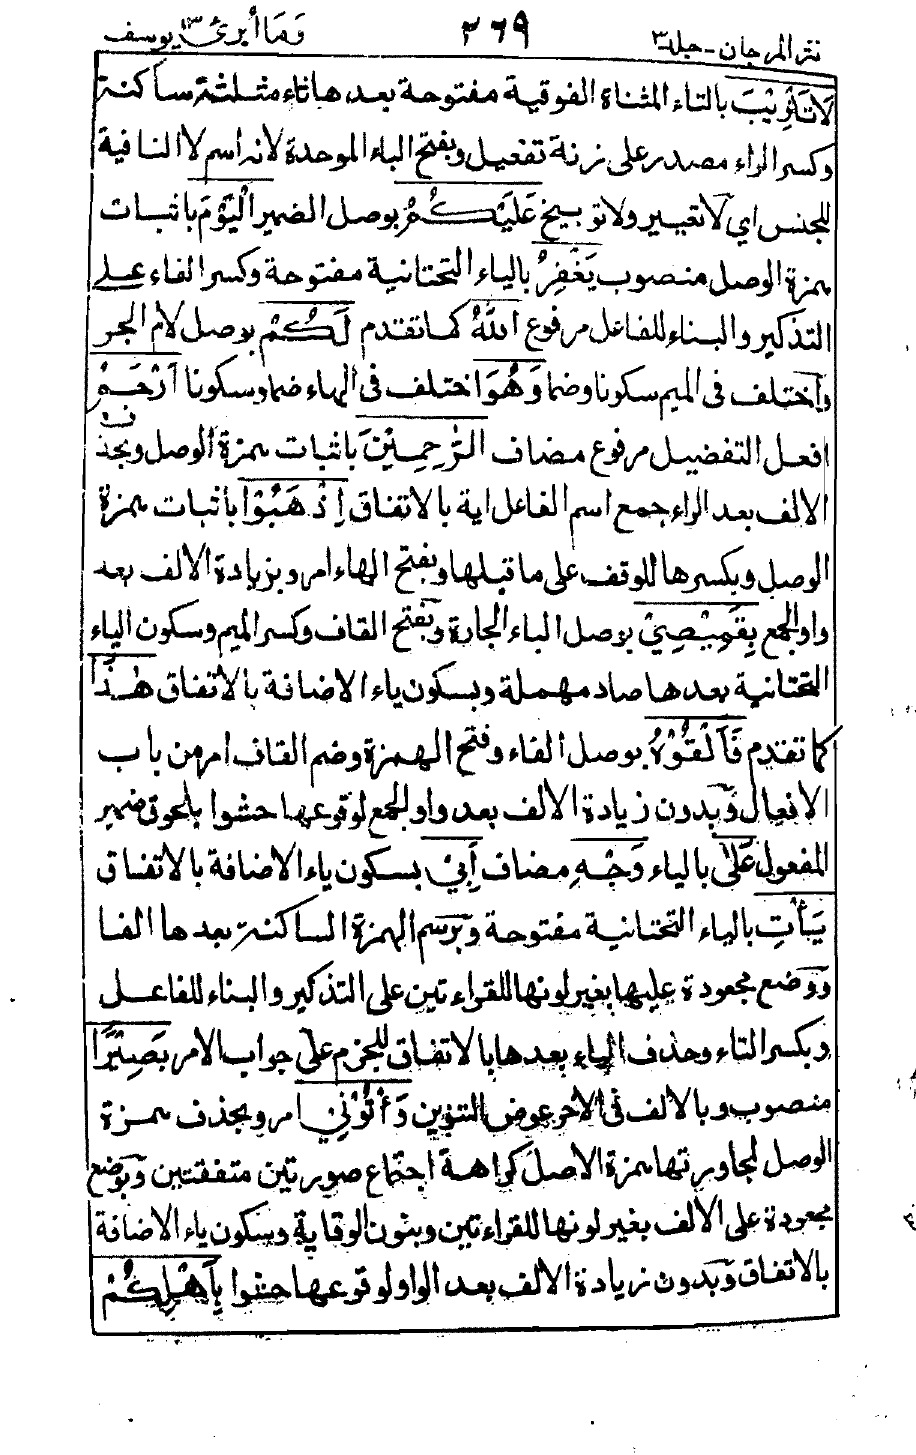 نثر المرجان - جلد ٣
٣٦٩
وَمَا أبرئ ١٣ يوسف
لَا تَثْرِيْبَ بالتاء المثناة الفوقية مفتوحة بعدها ثاء مثلثة ساكنة
وكسر الراء مصدر على زنة تفعيل وبفتح الباء الموحدة لانه اسم لا النافية
للجنس اي لا تعيير ولا توبيخ عَلَيْكُمُ بوصل الضمير الْيَوْمَ باثبات
همزة الوصل منصوب يَغْفِرُ بالياء التحتانية مفتوحة وكسر الفاء على
التذكير والبناء للفاعل مرفوع اللهُ كما تقدم لَكُمْ بوصل لام الجر
واختلف فى الميم سكونا وضما وَهُوَ اختلف فى الهاء ضما وسكونا اَرْحَمُ
افعل التفضيل مرفوع مضاف الرّٰحِمِيْنَ باثبات همزة الوصل وبحذف
الالف بعد الراء جمع اسم الفاعل اية بالاتفاق اِذْهَبُوْا باثبات همزة
الوصل وبكسرها للوقف على ما قبلها وبفتح الهاء امر وبزيادة الالف بعد
واو الجمع بِقَمِيْصِيْ بوصل الباء الجارة وبفتح القاف وكسر الميم وسكون الياء
التحتانية بعدها صاد مهملة وبسكون ياء الاضافة بالاتفاق هٰذَا
كما تقدم فَاَلْقُوْهُ بوصل الفاء وفتح الهمزة وضم القاف امر من باب
الافعال وبدون زيادة الالف بعد واو الجمع لوقوعها حشوا بلحوق ضمير
المفعول عَلٰى بالياء وَجْهِ مضاف اَبِيْ بسكون ياء الاضافة بالاتفاق
يَأْتِ بالياء التحتانية مفتوحة وبرسم الهمزة الساكنة بعدها الفا
ووضع مجعودة عليها بغير لونها للقراءتين على التذكير والبناء للفاعل
وبكسر التاء وحذف الياء بعدها بالاتفاق للجزم على جواب الامر بَصِيْرًا
منصوب وبالالف فى الاخر عوض التنوين وَأْتُوْنِيْ امر وبحذف همزة
الوصل لمجاورتها همزة الاصل كراهة اجتماع صورتين متفقتين وبوضع
مجعودة على الالف بغير لونها للقراءتين وبنون الوقاية وسكون ياء الاضافة
بالاتفاق وبدون زيادة الالف بعد الواو لوقوعها حشوا بِاَهْلِكُمْ